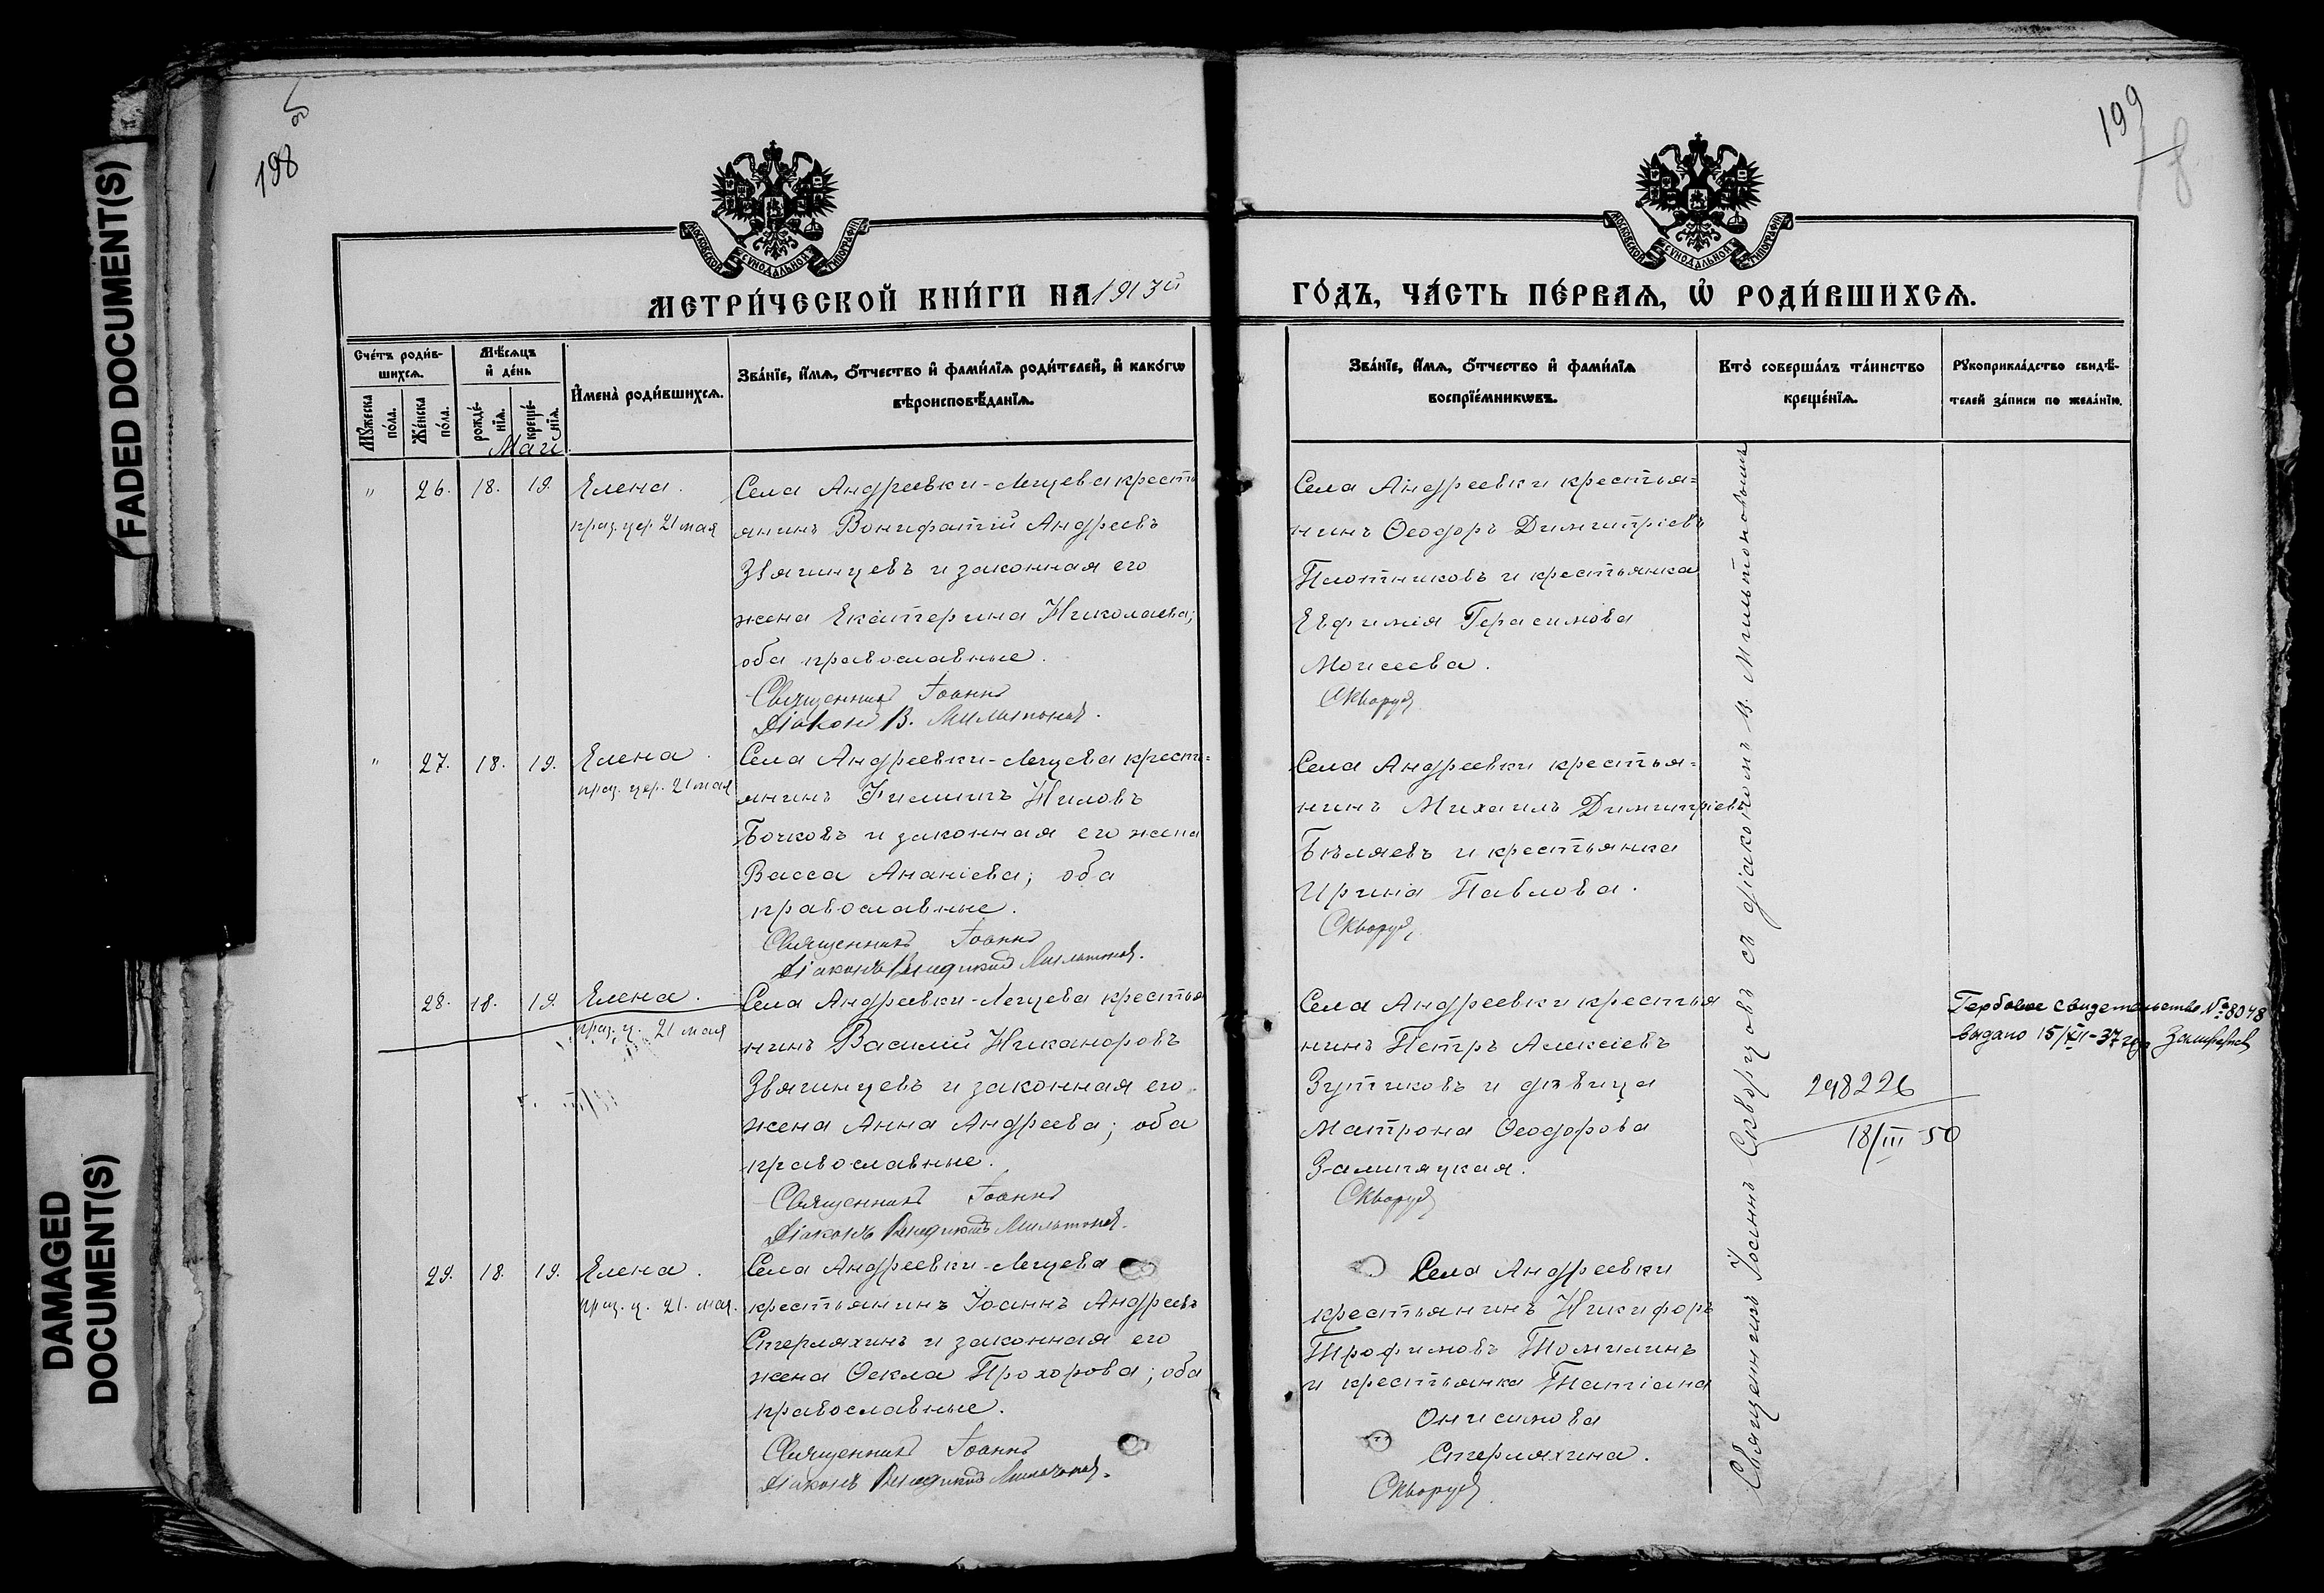 FADED DOCUMENT(S)
DAMAGED
DOCUMENT(S)
198
199
МОСКОВСКОЙ СѴНОДАЛЬНОЙ ТИПОГРАФІИ
МОСКОВСКОЙ СѴНОДАЛЬНОЙ ТИПОГРАФІИ
МЕТРИ́ЧЕСКОЙ КНИ́ГИ НА 1913й
ГО́ДЪ, ЧА́СТЬ ПЕ́РВАѦ, Ѡ҆ РОДИ́ВШИХСѦ.
Сче́тъ роди́в-
шихсѧ.
Мꙋ́жеска по́ла.
Же́нска по́ла.
Мѣ́сѧцъ
и҆ де́нь
рожде́-
нїѧ.
креще́-
нїѧ.
И҆мена̀ роди́вшихсѧ.
Зва́нїе, и҆́мѧ, ѻ҆́тчество и҆ фами́лїѧ роди́телей, и҆ како́гѡ
вѣроисповѣ́данїѧ.
Зва́нїе, и҆́мѧ, ѻ҆́тчество и҆ фами́лїѧ
воспрїе́мникѡвъ.
Кто̀ соверша́лъ та́инство
креще́нїѧ.
Рꙋкоприкла́дство свидѣ́-
телей за́писи по жела́нїю.
Маи
" 26. 18. 19. Елена.
праз. цер 21 мая
Села Андреевки-Лецева кресть
янинъ Вонифатій Андреевъ
Звягинцевъ и законная его
жена Екатерина Николаева;
оба православные.
Священникъ Іоаннъ
Діаконъ В. Мильтоновъ.
Села Андреевки крестья=
нинъ Ѳеодоръ Димитріевъ
Плотниковъ и крестьянка
Евфимія Герасимова
Моисеева.
Скворцовъ
" 27. 18. 19. Елена.
праз. цер. 21 мая
Села Андреевки-Лецева кресть=
янинъ Филиппъ Ниловъ
Бочковъ и законная его жена
Васса Ананіева; оба
православные.
Священникъ Іоаннъ
Діаконъ Венедиктъ Мильтоновъ.
Села Андреевки крестья=
нинъ Михаилъ Димитріевъ
Бѣляевъ и крестьянка
Ирина Павлова.
Скворцовъ
28. 18. 19. Елена.
праз. ц. 21 мая
Села Андреевки-Лецева крестья
нинъ Василій Никаноровъ
Звягинцевъ и законная его
жена Анна Андреева; оба
православные.
Священникъ Іоаннъ
Діаконъ Венедиктъ Мильтоновъ.
Села Андреевки крестья
нинъ Петръ Алексіевъ
Зутиковъ и дѣвица
Матрона Ѳеодорова
Скворцовъ
Гербовое свидетельство № 8048
выдано 15/XII-37 г
298226
18/III 50
29. 18. 19. Елена.
праз. ц. 21. мая.
Села Андреевки-Лецева
крестьянинъ Іоаннъ Андреевъ
Стерляхинъ и законная его
жена Ѳекла Прохорова; оба
православные.
Священникъ Іоаннъ
Діаконъ Венедиктъ Мильтоновъ.
Села Андреевки
крестьянинъ Никифоръ
Трофимовъ Томилинъ
и крестьянка Татіана
Онисимова
Стерляхина.
Скворцовъ
Священникъ Іоаннъ Скворцовъ съ діакономъ В. Мильтоновымъ